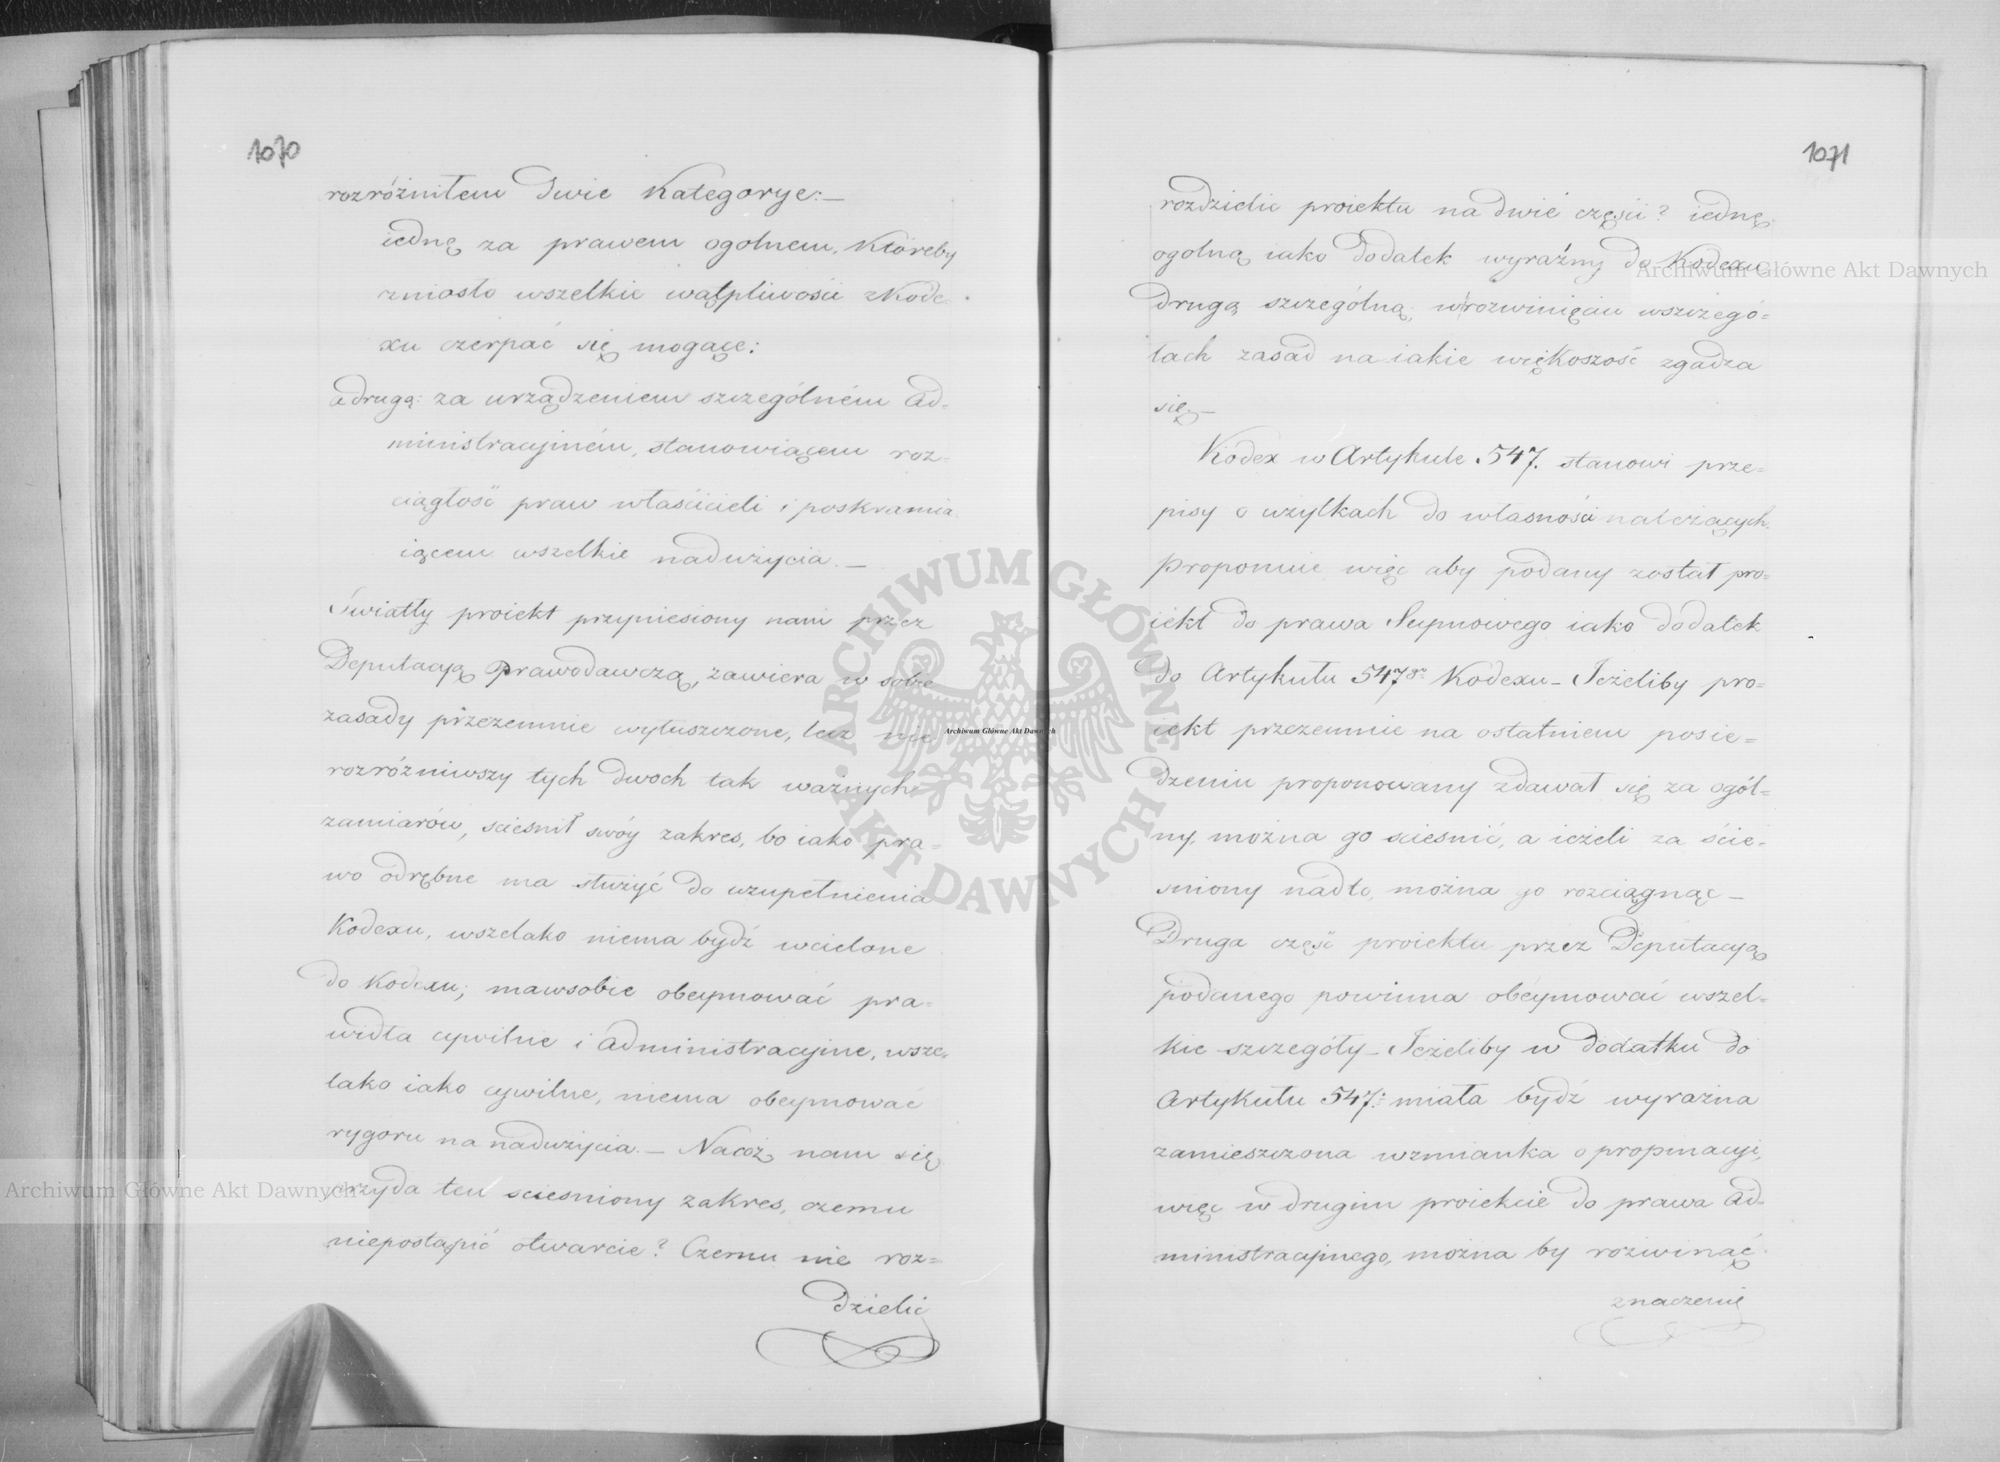 1070
rozróżniłem dwie Kategorye:—
iednę za prawem ogolnem, Któreby
zniosło wszelkie wątpliwości z Kode
xu czerpać się mogące:
a drugą: za urządzeniem szczególném ad-
ministracyiném, stanowiącem roz-
ciągłość praw właścicieli i poskramia
iącem wszelkie nadużycia.—
Światły proiekt przyniesiony nam przez
Deputacyą Prawodawczą, zawiera w sobie
zasady przezemnie wyłuszczone, lecz nie
rozróżniwszy tych dwoch tak ważnych
zamiarów, scieśnił swóy zakres, bo iako pra=
wo odrębne ma służyć do uzupełnienia
Kodexu, wszelako niema bydź wcielone
do Kodexu; ma w sobie obeymować pra=
widła cywilne i administracyine, wsze=
lako iako cywilne, niema obeymować
rygoru na nadużycia.— Nacóż nam się
przyda ten scieśniony zakres, czemu
niepostąpić otwarcie? Czemu nie roz=
dzielić
1071
rozdzielić proiektu na dwie części? iednę
ogolną iako dodatek wyraźny do Kodexu
drugą szczególną, w rozwinięciu wszczegó=
łach zasad na iakie większość zgadza
się—
Kodex w Artykule 547. stanowi prze=
pisy o użytkach do własności należących.
Proponuie więc aby podany został pro=
iekt do prawa Seymowego iako dodatek
do Artykułu 547go Kodexu— Jeżeliby pro=
iekt przezemnie na ostatniem posie=
dzeniu proponowany zdawał się za ogól=
ny, można go scieśnić, a ieżeli za ście-
śniony nadto, można go rozciągnąć—
Druga część proiektu przez Deputacyą
podanego powinna obeymować wszel=
kie szczegóły— Jeżeliby w dodatku do
Artykułu 547: miała bydź wyraźna
zamieszczona wzmianka o propinacyi,
więc w drugim proiekcie do prawa ad=
ministracyinego, można by rozwinąć
znaczenie
Archiwum Główne Akt Dawnych
Archiwum Główne Akt Dawnych
Archiwum Główne Akt Dawnych
ARCHIWUM GŁÓWNE AKT DAWNYCH